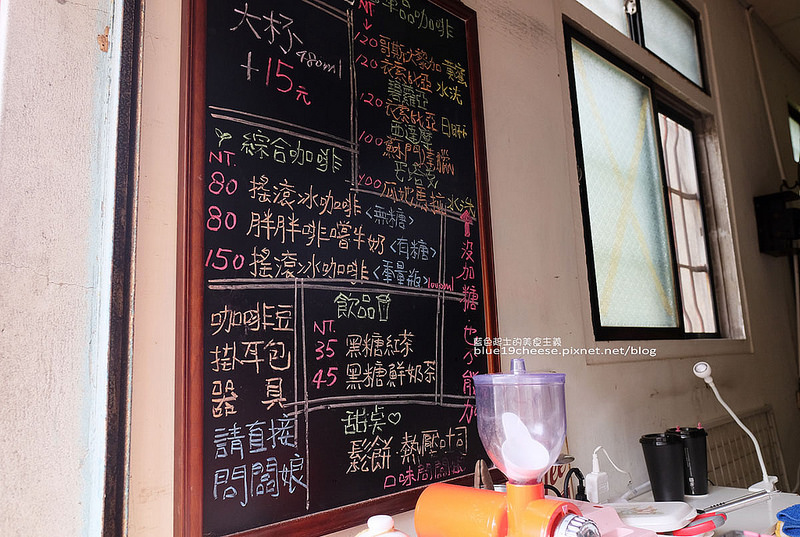 大杯
480ml
+15元
單品咖啡
NT.
120 哥斯大黎加 蜜處
120 衣索比亞 水洗
120 衣索比亞 日曬
亞達摩
100 蘇門達臘
100 瓜地馬拉 水洗
綜合咖啡
NT.
80 搖滾冰咖啡 <無糖>
80 胖胖啡嚐牛奶 <有糖>
150 搖滾冰咖啡 <重量瓶> 1000ml
咖啡豆
掛耳包
器具
請直接
問闆娘
飲品
NT.
35 黑糖紅茶
45 黑糖鮮奶茶
甜點♡
鬆餅 熱壓吐司
口味問闆娘
沒加糖也不能加
藍色起士的美疫主義
blue19cheese.pixnet.net/blog